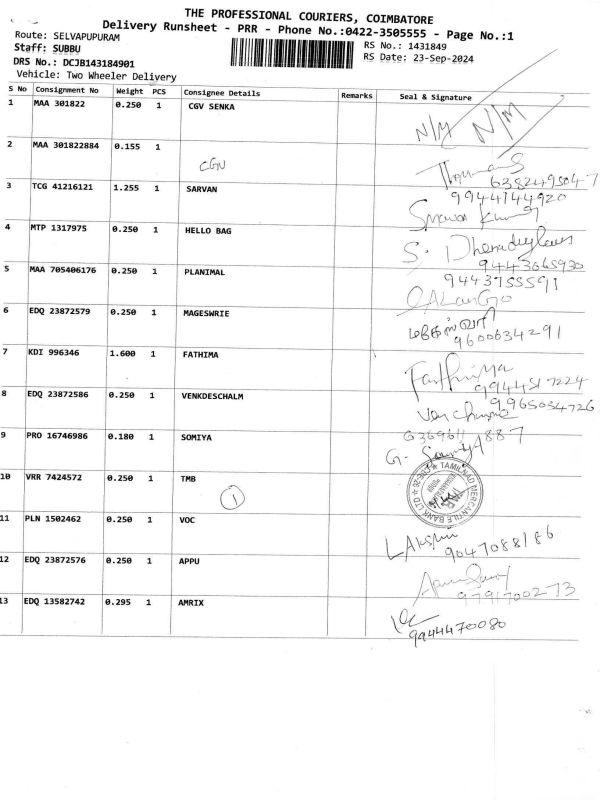 THE PROFESSIONAL COURIERS, COIMBATORE
Delivery Runsheet - PRR - Phone No.:0422-3505555 - Page No.:1
Route: SELVAPUPURAM
Staff: SUBBU
RS No.: 1431849
RS Date: 23-Sep-2024
DRS No.: DCJB143184901
Vehicle: Two Wheeler Delivery
S No Consignment No Weight PCS Consignee Details Remarks Seal & Signature
1 MAA 301822 0.250 1 CGV SENKA N/M N/M
2 MAA 301822884 0.155 1
6382495047
3 TCG 41216121 1.255 1 SARVAN 9944144920
4 MTP 1317975 0.250 1 HELLO BAG S.
9443665930
5 MAA 705406176 0.250 1 PLANIMAL 9443755591
6 EDQ 23872579 0.250 1 MAGESWRIE மகேஸ்வரி
9600634291
7 KDI 996346 1.600 1 FATHIMA
9944517224
8 EDQ 23872586 0.250 1 VENKDESCHALM 9965034726
9 PRO 16746986 0.180 1 SOMIYA 6369611887
G.
10 VRR 7424572 0.250 1 TMB
1
TAMILNAD MERCANTILE BANK LTD
11 PLN 1502462 0.250 1 VOC
9047088186
12 EDQ 23872576 0.250 1 APPU
9791700273
13 EDQ 13582742 0.295 1 AMRIX
9944470080